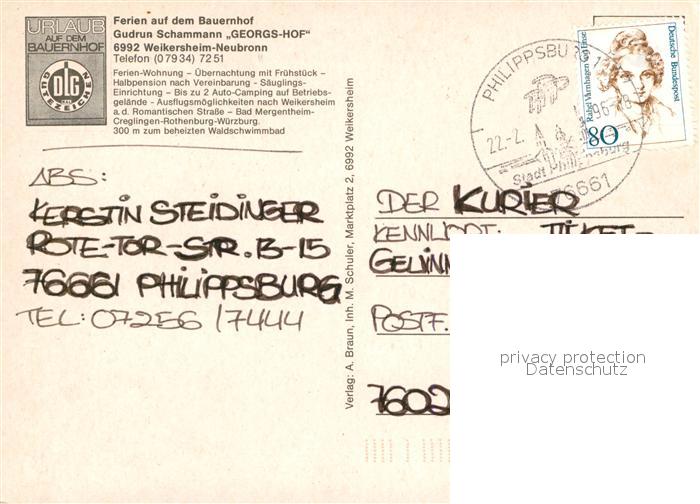 URLAUB
AUF DEM
BAUERNHOF
DLG
GÜTEZEICHEN
Ferien auf dem Bauernhof
Gudrun Schammann „GEORGS-HOF"
6992 Weikersheim-Neubronn
Telefon (07934) 7251
Ferien-Wohnung – Übernachtung mit Frühstück –
Halbpension nach Vereinbarung - Säuglings-
Einrichtung – Bis zu 2 Auto-Camping auf Betriebs-
gelände - Ausflugsmöglichkeiten nach Weikersheim
a.d. Romantischen Straße – Bad Mergentheim-
Creglingen-Rothenburg-Würzburg.
300 m zum beheizten Waldschwimmbad
ABS:
KERSTIN STEIDINGER
ROTE-TOR-STR. 13-15
76661 PHILIPPSBURG
TEL: 07256 / 7444
Verlag: A. Braun, Inh. M. Schuler, Marktplatz 2, 6992 Weikersheim
PHILIPPSBU 1
22.-2. 96-18
Stadt Philippsburg
76661
Deutsche Bundespost
Rahel Varnhagen von Ense
80
DER KURIER
KENNWORT: TICKET-
GEWINN
POSTF.
7602
privacy protection
Datenschutz